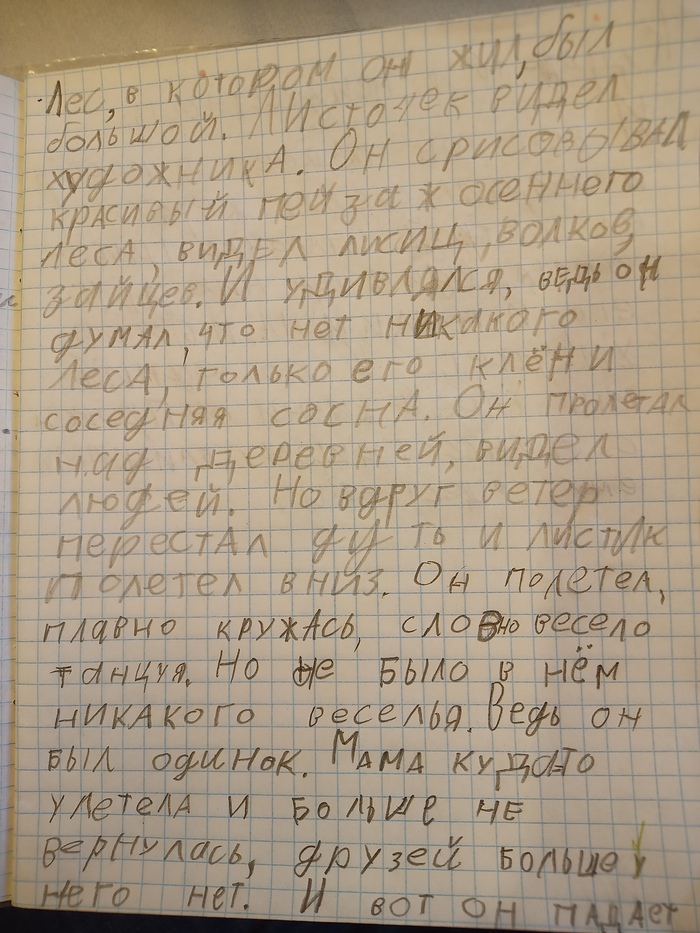 Лес, в котором он жил, был
большой. Листочек видел
художника. Он срисовывал
красивый пейзаж осеннего
леса, видел лисиц, волков,
зайцев. И удивлялся, ведь он
думал, что нет никакого
леса, только его клён и
соседняя сосна. Он пролетал
над деревней, видел
людей. Но вдруг ветер
перестал дуть и листик
полетел вниз. Он полетел,
плавно кружась, словно весело
танцуя. Но не было в нём
никакого веселья. Ведь он
был одинок. Мама куда-то
улетела и больше не
вернулась, друзей больше у
него нет. И вот он падает